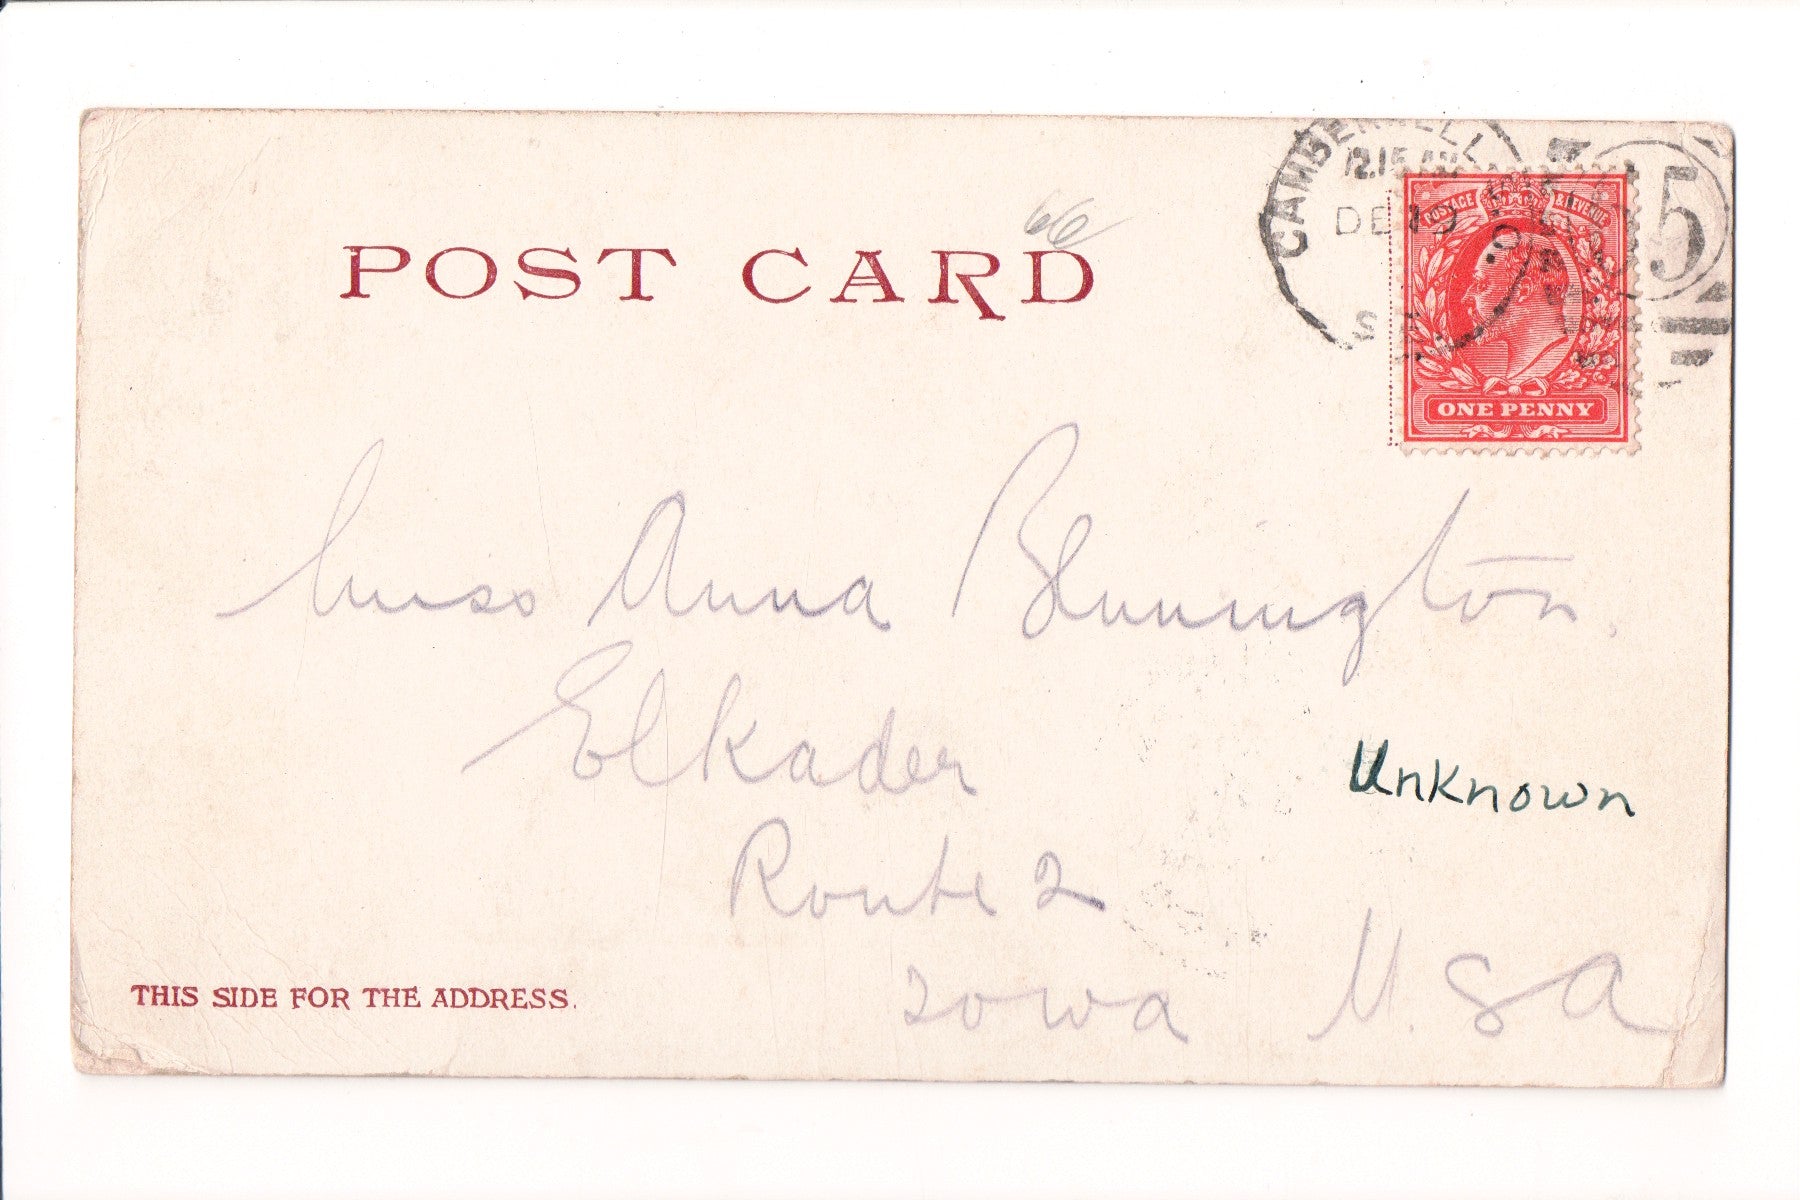 CAMBERWELL
12.15 AM
DE 19
S.E.
85
POSTAGE & REVENUE
ONE PENNY
66
POST CARD
Miss Anna Blunnington.
Elkader
Unknown
Route 2
Iowa U.S.A
THIS SIDE FOR THE ADDRESS.